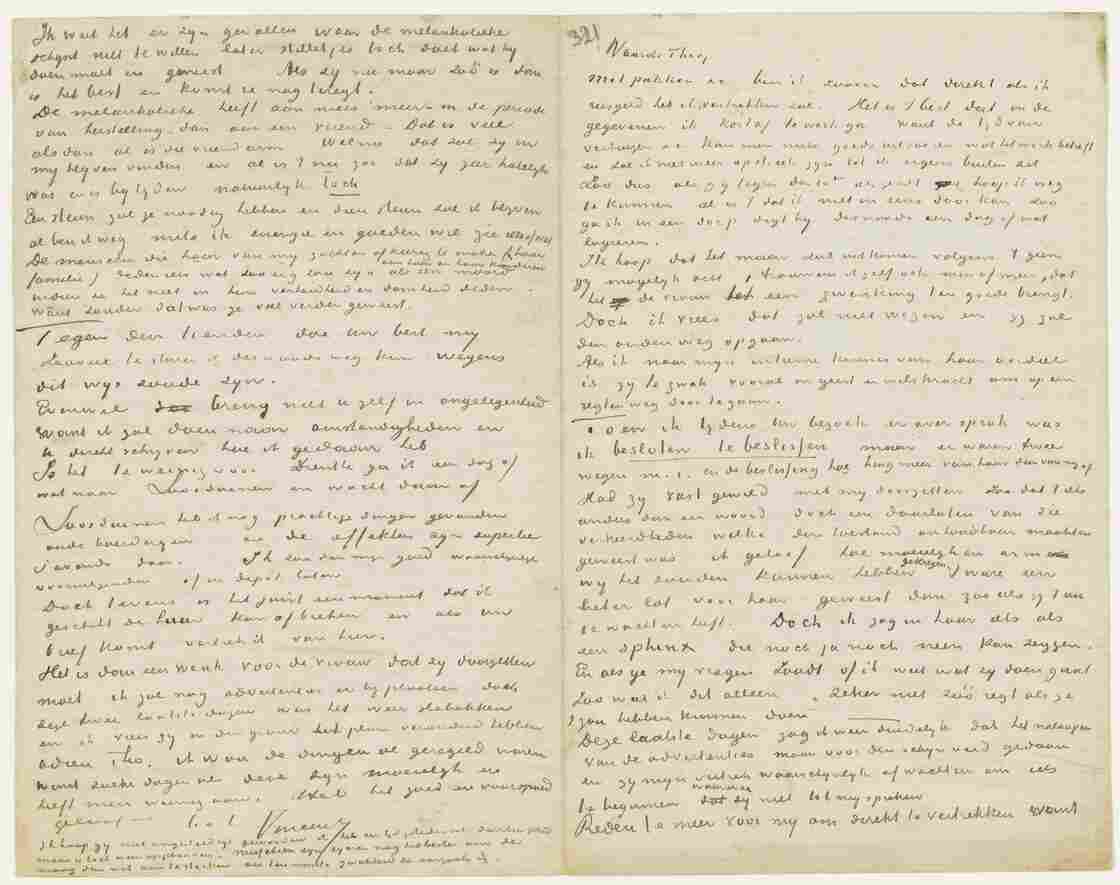 Ik weet het er zijn gevallen waar de melankolieke
schijnt niet te willen later stilletjes toch doet wat hij
doen moet en geneest. Als zij nu maar zoo is dan
is het best en komt ze nog teregt.
De melankolieke heeft aan niets meer in de periode
van herstelling dan aan een vriend. Dat is veel
als dan al is die vriend arm. Welnu dat zal zij in
mij blijven vinden en al is 't nu zoo dat zij zeer hatelijk
was en is bij tijden natuurlijk toch
Een steun zal ze noodig hebben en dien steun zal ik blijven
al ben ik weg mits ik energie en goeden wil zie
De menschen die haar van mij zochten afkeerig te maken (haar
familie) deden iets wat zoo erg zou zijn als een moord
indien ze het niet in hun verblindheid en domheid deden.
want zonder dat was ze veel verder geweest.
Tegen den tienden doe Uw best mij
te sturen ik des noods weg kan wegens
dit wijs zoude zijn.
Evenwel breng niet U zelf in ongelegenheid
want ik zal doen naar omstandigheden en
U direkt schrijven hoe ik gedaan heb
Is het te weinig voor Drenthe ga ik een dag of
wat naar Loosduinen en wacht daar af
Loosduinen heb ik nog prachtige dingen gevonden
oude boerderijen en de effekten zijn superbe
's avonds daar. Ik zou dan mijn goed waarschijnlijk
vooruitzenden of in depot laten
Doch tevens is het juist een moment dat ik
geschikt de huur kan afbreken en als uw
brief komt vertrek ik van hier.
Het is dan een wenk voor de vrouw dat zij doorzetten
moet ik zal nog advertenties er bij plaatsen doch
deze twee laatste dagen was het weer slabakken
en ik vrees zij in dien zin het plan veranderd hebben
adieu Theo. ik wou de dingen al geregeld waren
want zulke dagen als deze zijn moeielijk en
heeft men weinig aan. Heb het goed en voorspoed
geloof me t.à t. Vincent
Ik hoop gij niet ongeduldig geworden
321
Waarde Theo,
Met pakken en ben ik zoover dat direkt als ik
reisgeld heb ik vertrekken zal. Het is 't best dat in de
gegevenen ik kort af te werk ga want de tijd van
verhuizen en kan men niets goeds uitvoeren wat het werk betreft
en zal ik niet meer op streek zijn tot ik ergens buiten zit
Zoo dus als gij tegen den 10n als zendt hoop ik weg
te kunnen al is 't dat ik niet in eens door kan zoo
ga ik in een dorp digt bij desnoods een dag of wat
logeeren.
Ik hoop dat het maar zal uitkomen volgens 't geen
gij mogelijk acht, & trouwens ikzelf ook min of meer, dat
het de vrouw een zwenking ten goede brengt.
Doch ik vrees dat zal niet wezen en zij zal
den ouden weg op gaan.
Als ik naar mijn intieme kennis van haar oordeel
is zij te zwak vooral in geest en wilskracht om op een
regten weg door te gaan.
Toen ik tijdens Uw bezoek er over sprak was
ik besloten te beslissen maar er waren twee
wegen m.i. en de beslissing hoe hing meer van haar dan van mij af
Had zij vast gewild met mij doorzetten zoo dat 't iets
anders dan een woord doch een daarlaten van die
verkeerdheden welke den toestand onhoudbaar maakten
geweest was ik geloof hoe moeielijk en arm
wij het zouden kunnen hebben gekregen, 't ware een
beter lot voor haar geweest dan zooals zij 't nu
te wachten heeft. Doch ik zag in haar als als
een sphinx die noch ja noch neen kan zeggen.
En als ge mij vragen zoudt of ik weet wat zij doen gaat
zoo was ik dit alleen, zeker niet zoo regt als ze
't zou hebben kunnen doen
Deze laatste dagen zag ik weer duidelijk dat het naloopen
van de advertenties maar voor den schijn werd gedaan
en zij mijn vertrek waarschijnlijk afwachten om iets
te beginnen waarover zij niet tot mij spreken
Reden te meer voor mij om direkt te vertrekken want